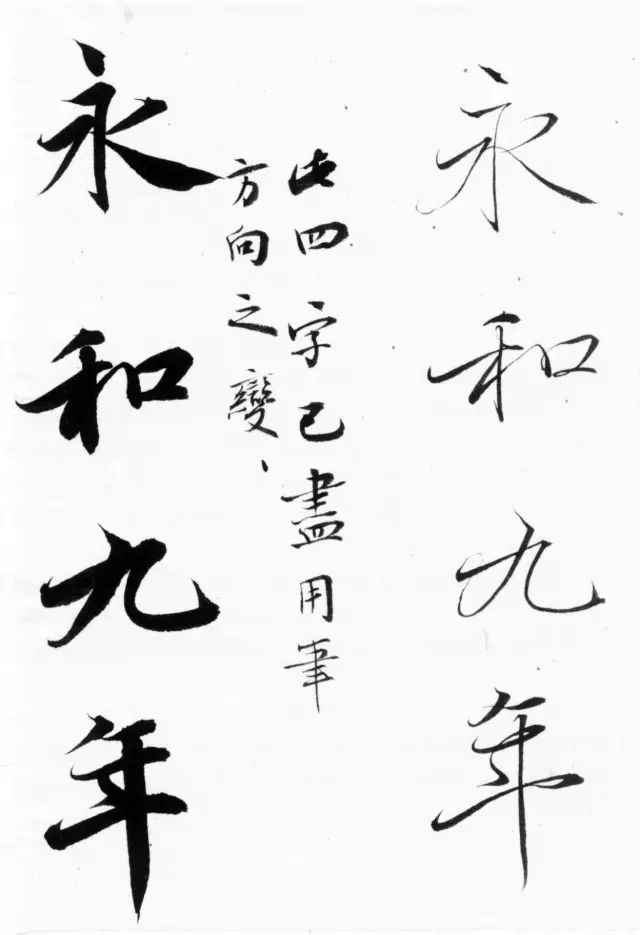 永和九年
此四字已盡用筆
方向之變
永和九年